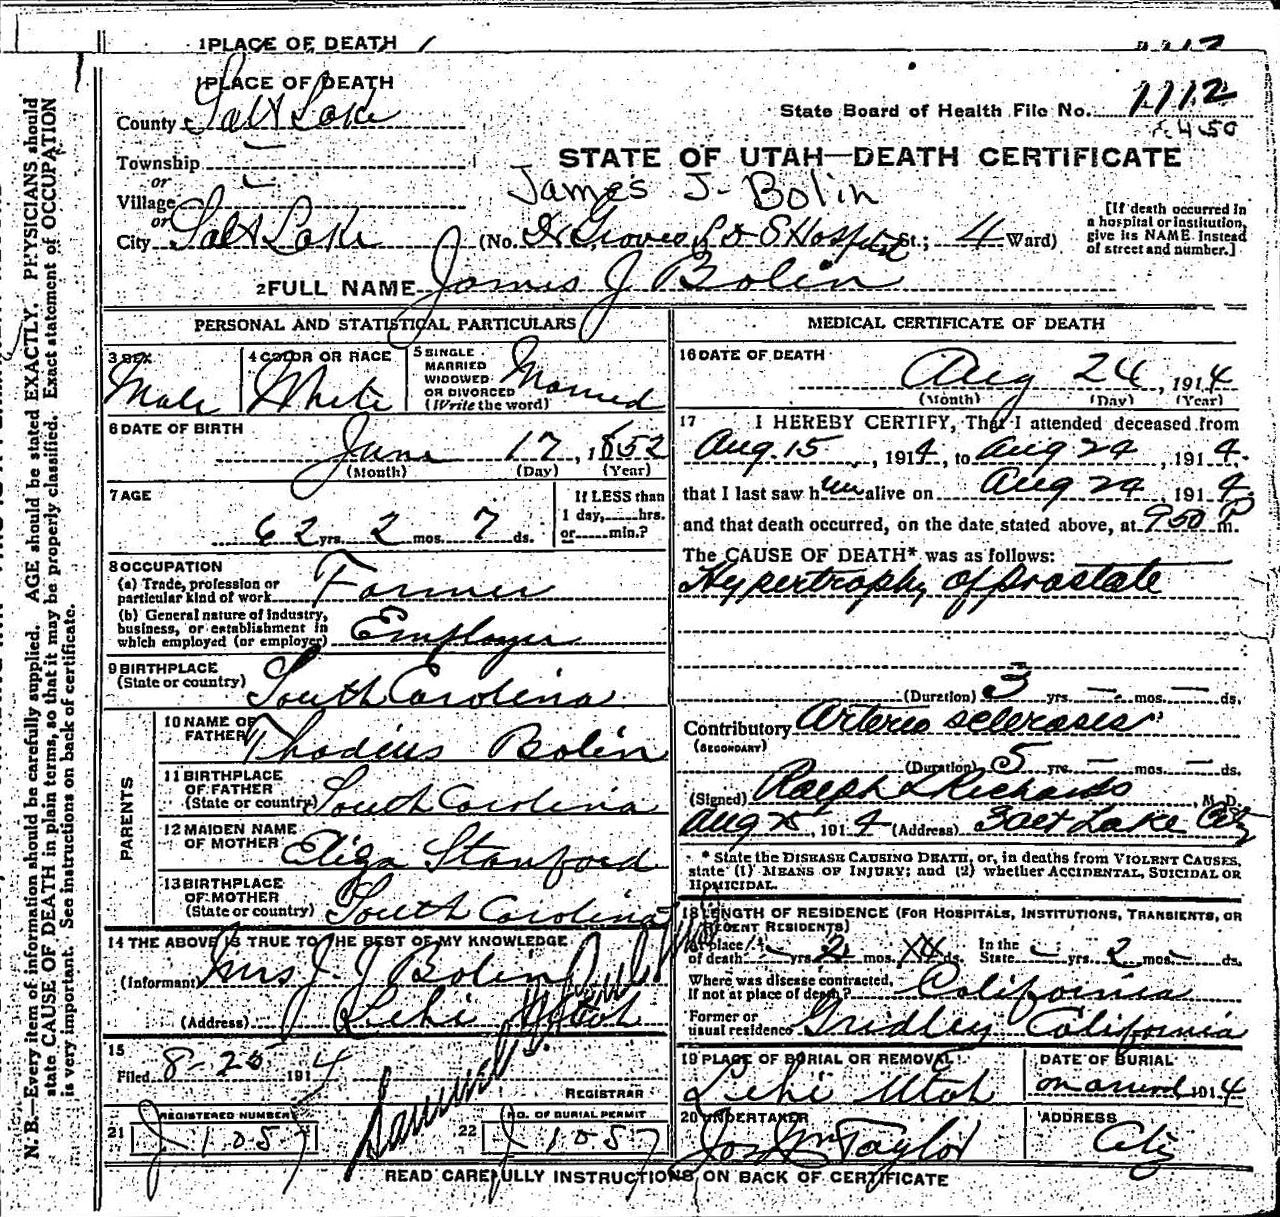 1 PLACE OF DEATH
1112
1 PLACE OF DEATH
County Salt Lake
State Board of Health File No. 1112
450
Township
or
Village
or
City Salt Lake
STATE OF UTAH—DEATH CERTIFICATE
James J. Bolin
(No. Dr Groves L D S Hospital St.; 4 Ward)
[If death occurred in
a hospital or institution,
give its NAME instead
of street and number.]
2 FULL NAME James J Bolin
PERSONAL AND STATISTICAL PARTICULARS
3 SEX
Male
4 COLOR OR RACE
White
5 SINGLE
MARRIED
WIDOWED
OR DIVORCED
(Write the word)
Married
6 DATE OF BIRTH
June 17, 1852
(Month) (Day) (Year)
7 AGE
62 yrs. 2 mos. 7 ds.
If LESS than
1 day, hrs.
or min.?
8 OCCUPATION
(a) Trade, profession or
particular kind of work Farmer
(b) General nature of industry,
business, or establishment in
which employed (or employer) Employer
9 BIRTHPLACE
(State or country) South Carolina
PARENTS
10 NAME OF
FATHER Thadius Bolin
11 BIRTHPLACE
OF FATHER
(State or country) South Carolina
12 MAIDEN NAME
OF MOTHER Eliza Stanford
13 BIRTHPLACE
OF MOTHER
(State or country) South Carolina
14 THE ABOVE IS TRUE TO THE BEST OF MY KNOWLEDGE
(Informant) Mrs J. J Bolin
(Address) Lehi Utah
15
Filed 8-25 1914
REGISTRAR
REGISTERED NUMBER
21 J 1057
NO. OF BURIAL PERMIT
22 J 1057
MEDICAL CERTIFICATE OF DEATH
16 DATE OF DEATH
Aug 24, 1914
(Month) (Day) (Year)
17 I HEREBY CERTIFY, That I attended deceased from
Aug. 15, 1914, to Aug 24, 1914.
that I last saw him alive on Aug 24, 1914.
and that death occurred, on the date stated above, at 950 P m.
The CAUSE OF DEATH* was as follows:
Hypertrophy of prostate
(Duration) 3 yrs. — mos. — ds.
Contributory Arterio sclerosis
(SECONDARY)
(Duration) 5 yrs. — mos. — ds.
(Signed) Ralph L Richards, M. D.
Aug 25, 1914 (Address) Salt Lake City
* State the DISEASE CAUSING DEATH, or, in deaths from VIOLENT CAUSES,
state (1) MEANS OF INJURY; and (2) whether ACCIDENTAL, SUICIDAL OR
HOMICIDAL.
18 LENGTH OF RESIDENCE (FOR HOSPITALS, INSTITUTIONS, TRANSIENTS, OR
RECENT RESIDENTS)
At place
of death yrs. 2 mos. ds.
In the
State — yrs. 2 mos. — ds.
Where was disease contracted,
if not at place of death? California
Former or
usual residence Gridley California
19 PLACE OF BURIAL OR REMOVAL
Lehi Utah
DATE OF BURIAL
on arrival 1914
20 UNDERTAKER
Jos Wm Taylor
ADDRESS
City
READ CAREFULLY INSTRUCTIONS ON BACK OF CERTIFICATE
N. B.—Every item of information should be carefully supplied. AGE should be stated EXACTLY. PHYSICIANS should
state CAUSE OF DEATH in plain terms, so that it may be properly classified. Exact statement of OCCUPATION
is very important. See instructions on back of certificate.